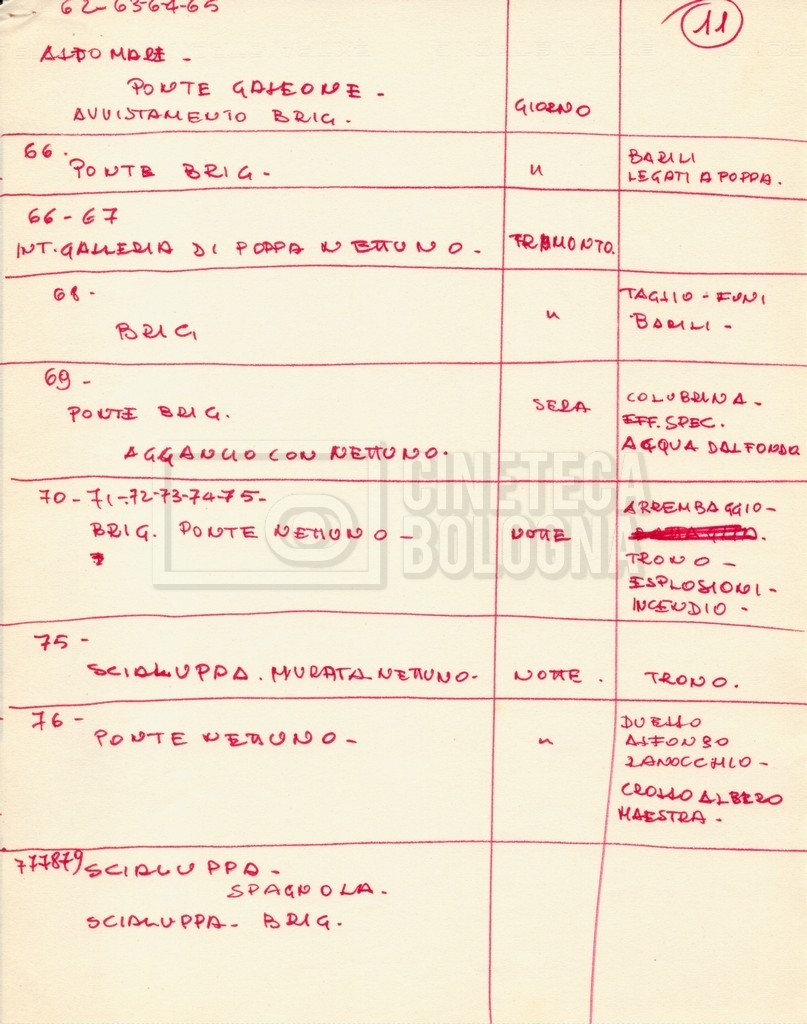 62-63-64-65
11
ALTO MARE -
PONTE GALEONE -
AVVISTAMENTO BRIG.
GIORNO
66.
PONTE BRIG.
"
BARILI
LEGATI A POPPA.
66-67
INT. GALLERIA DI POPPA NETTUNO -
TRAMONTO.
68-
BRIG
"
TAGLIO - FUNI
BARILI -
69-
PONTE BRIG.
AGGANCIO CON NETTUNO.
SERA
COLUBRINA -
EFF. SPEC.
ACQUA DAL FONDO
70-71-72-73-74-75-
BRIG. PONTE NETTUNO -
NOTTE
ARREMBAGGIO -
TRONO -
ESPLOSIONI -
INCENDIO -
CINETECA
BOLOGNA
75-
SCIALUPPA. MURATA NETTUNO -
NOTTE.
TRONO.
76-
PONTE NETTUNO -
"
DUELLO
ALFONSO
ZANOCCHIO -
CROLLO ALBERO
MAESTRA -
777879
SCIALUPPA -
SPAGNOLA -
SCIALUPPA - BRIG.